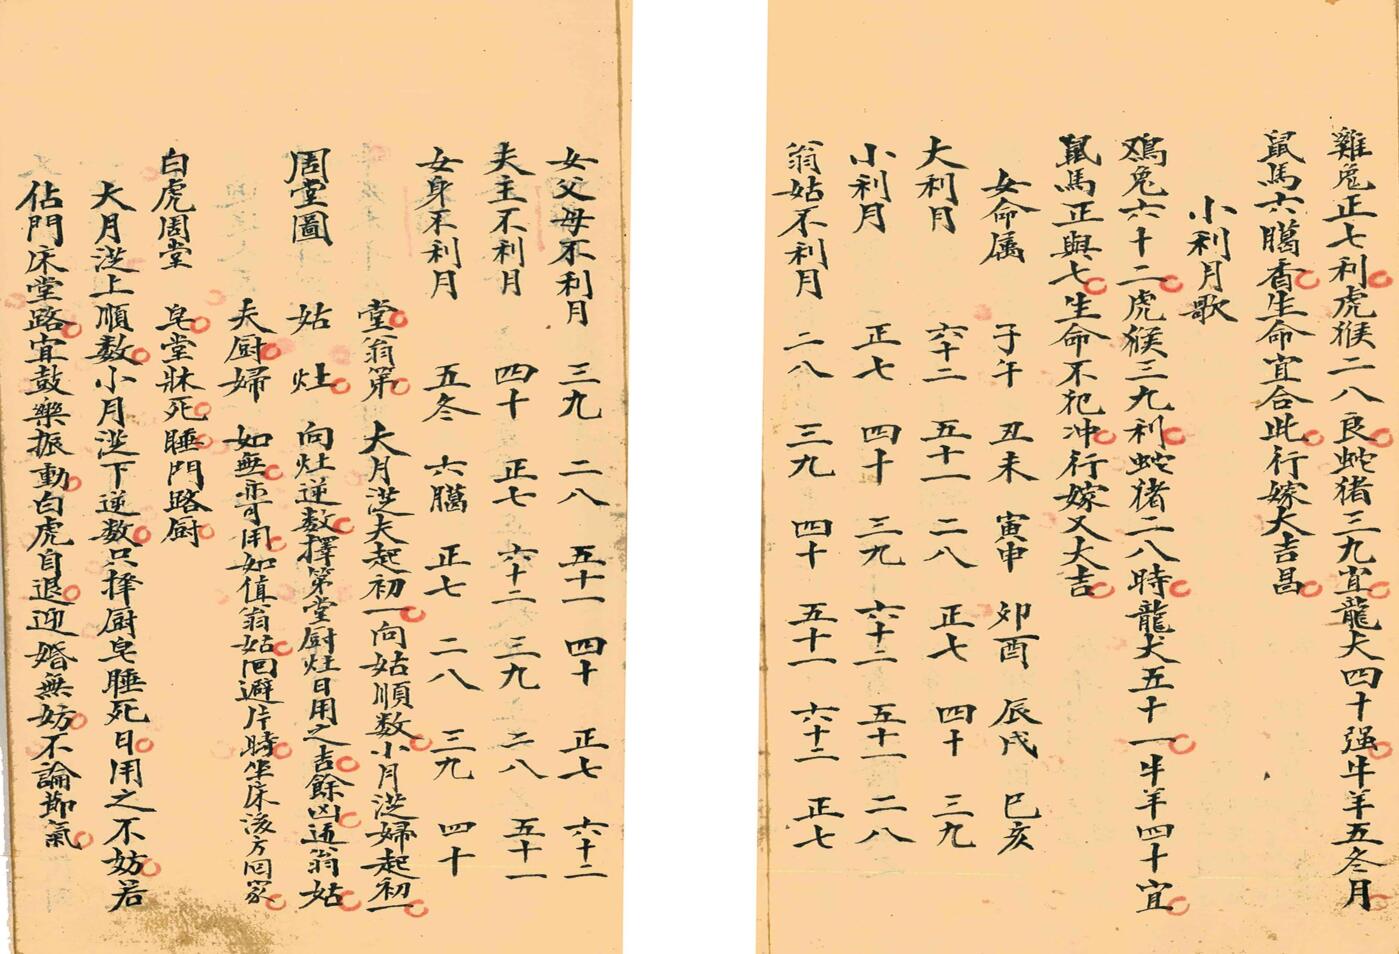 雞兔正七利虎猴二八良蛇猪三九宜龍犬四十强牛羊五冬月
鼠馬六臈香生命宜合此行嫁大吉昌
小利月歌
鴻兔六十二虎猴三九利蛇猪二八時龍犬五十一牛羊四十宜
鼠馬正與七生命不犯冲行嫁又大吉
女命属 子午 丑未 寅申 卯酉 辰戌 巳亥
大利月 六十二 五十一 二八 正七 四十 三九
小利月 正七 四十 三九 六十二 五十一 二八
翁姑不利月 二八 三九 四十 五十一 六十二 正七
女父母不利月 三九 二八 五十一 四十 正七 六十二
夫主不利月 四十 正七 六十二 三九 二八 五十一
女身不利月 五冬 六臈 正七 二八 三九 四十
堂翁第 大月從夫起初一向姑順数小月從婦起初一
周堂圖 姑 灶 向灶逆数擇第堂厨灶日用之吉餘凶逓翁姑
夫厨婦 如無亦可用如值翁姑囘避片時坐床後方囘家
白虎周堂 皂堂牀死睡門路厨
大月從上順数小月從下逆数只择厨皂睡死日用之不妨若
佔門床堂路宜鼓樂振動白虎自退迎婚無妨不論節氣